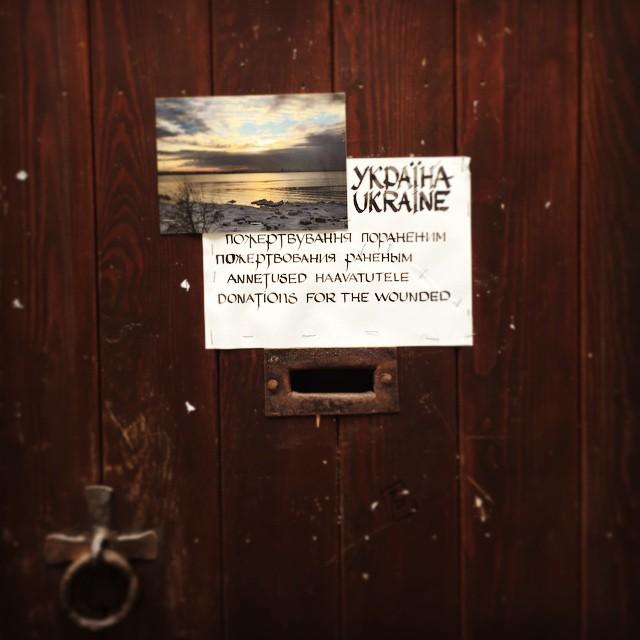 УКРАЇНА
UKRAINE
ПОЖЕРТВУВАННЯ ПОРАНЕНИМ
ПОЖЕРТВОВАНИЯ РАНЕНЫМ
ANNETUSED HAAVATUTELE
DONATIONS FOR THE WOUNDED